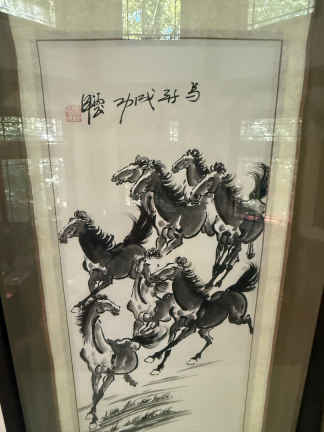 马到成功